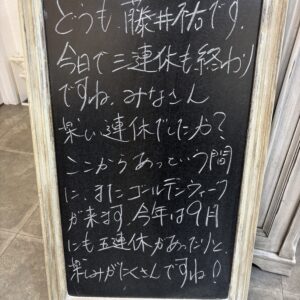 どうも藤井祐です。
今日で三連休も終わり
ですね。みなさん
楽しい連休でしたか?
ここからあっという間
に、またゴールデンウィーク
が来ます。今年は9月
にも五連休があったりと、
楽しみがたくさんですね!